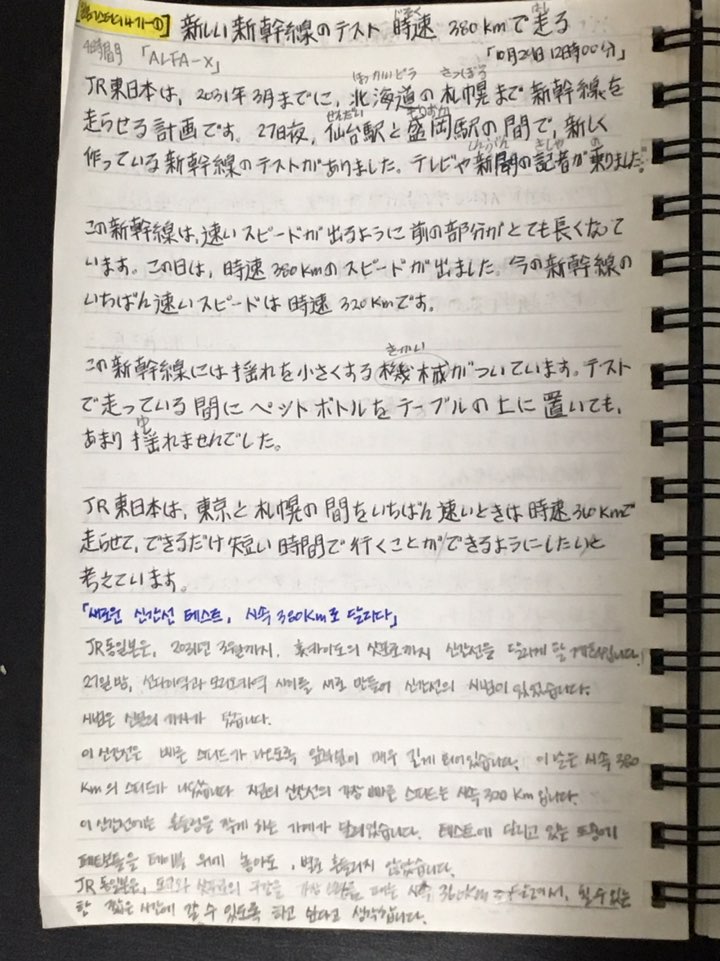 新しい新幹線のテスト 時速 380kmで走る
「ALFA-X」 「10月29日 12時00分」
JR東日本は、2031年3月までに、北海道の札幌まで新幹線を
走らせる計画です。27日夜、仙台駅と盛岡駅の間で、新しく
作っている新幹線のテストがありました。テレビや新聞の記者が乗りました。
この新幹線は、速いスピードが出るように前の部分がとても長くなって
います。この日は、時速380kmのスピードが出ました。今の新幹線の
いちばん速いスピードは時速320kmです。
この新幹線には揺れを小さくする機械がついています。テスト
で走っている間にペットボトルをテーブルの上に置いても、
あまり揺れませんでした。
JR東日本は、東京と札幌の間をいちばん速いときは時速360kmで
走らせて、できるだけ短い時間で行くことができるようにしたいと
考えています。
「새로운 신간선 테스트, 시속 380km로 달리다」
JR동일본은, 2031년 3월까지, 홋카이도의 삿포로까지 신간선을 달리게 할 계획입니다.
27일 밤, 센다이역과 모리오카역 사이를 새로 만들어 신간선의 시험이 있었습니다.
신문의 기자가 탔습니다.
이 신간선은 빠른 스피드가 나오도록 앞부분이 매우 길게 되어있습니다. 이 날은 시속 380
km의 스피드가 나왔습니다 지금의 신간선의 가장 빠른 스피드는 시속 300 km입니다.
이 신간선에는 흔들림을 작게 하는 기계가 달려있습니다. 테스트에 달리고 있는 도중에
페트보틀을 테이블 위에 놓아도, 별로 흔들리지 않았습니다.
JR동일본은, 도쿄와 삿포로의 구간을 가장 빠를 때는 시속 360km 달려서, 될 수 있는
한 짧은 시간에 갈 수 있도록 하고 싶다고 생각합니다.